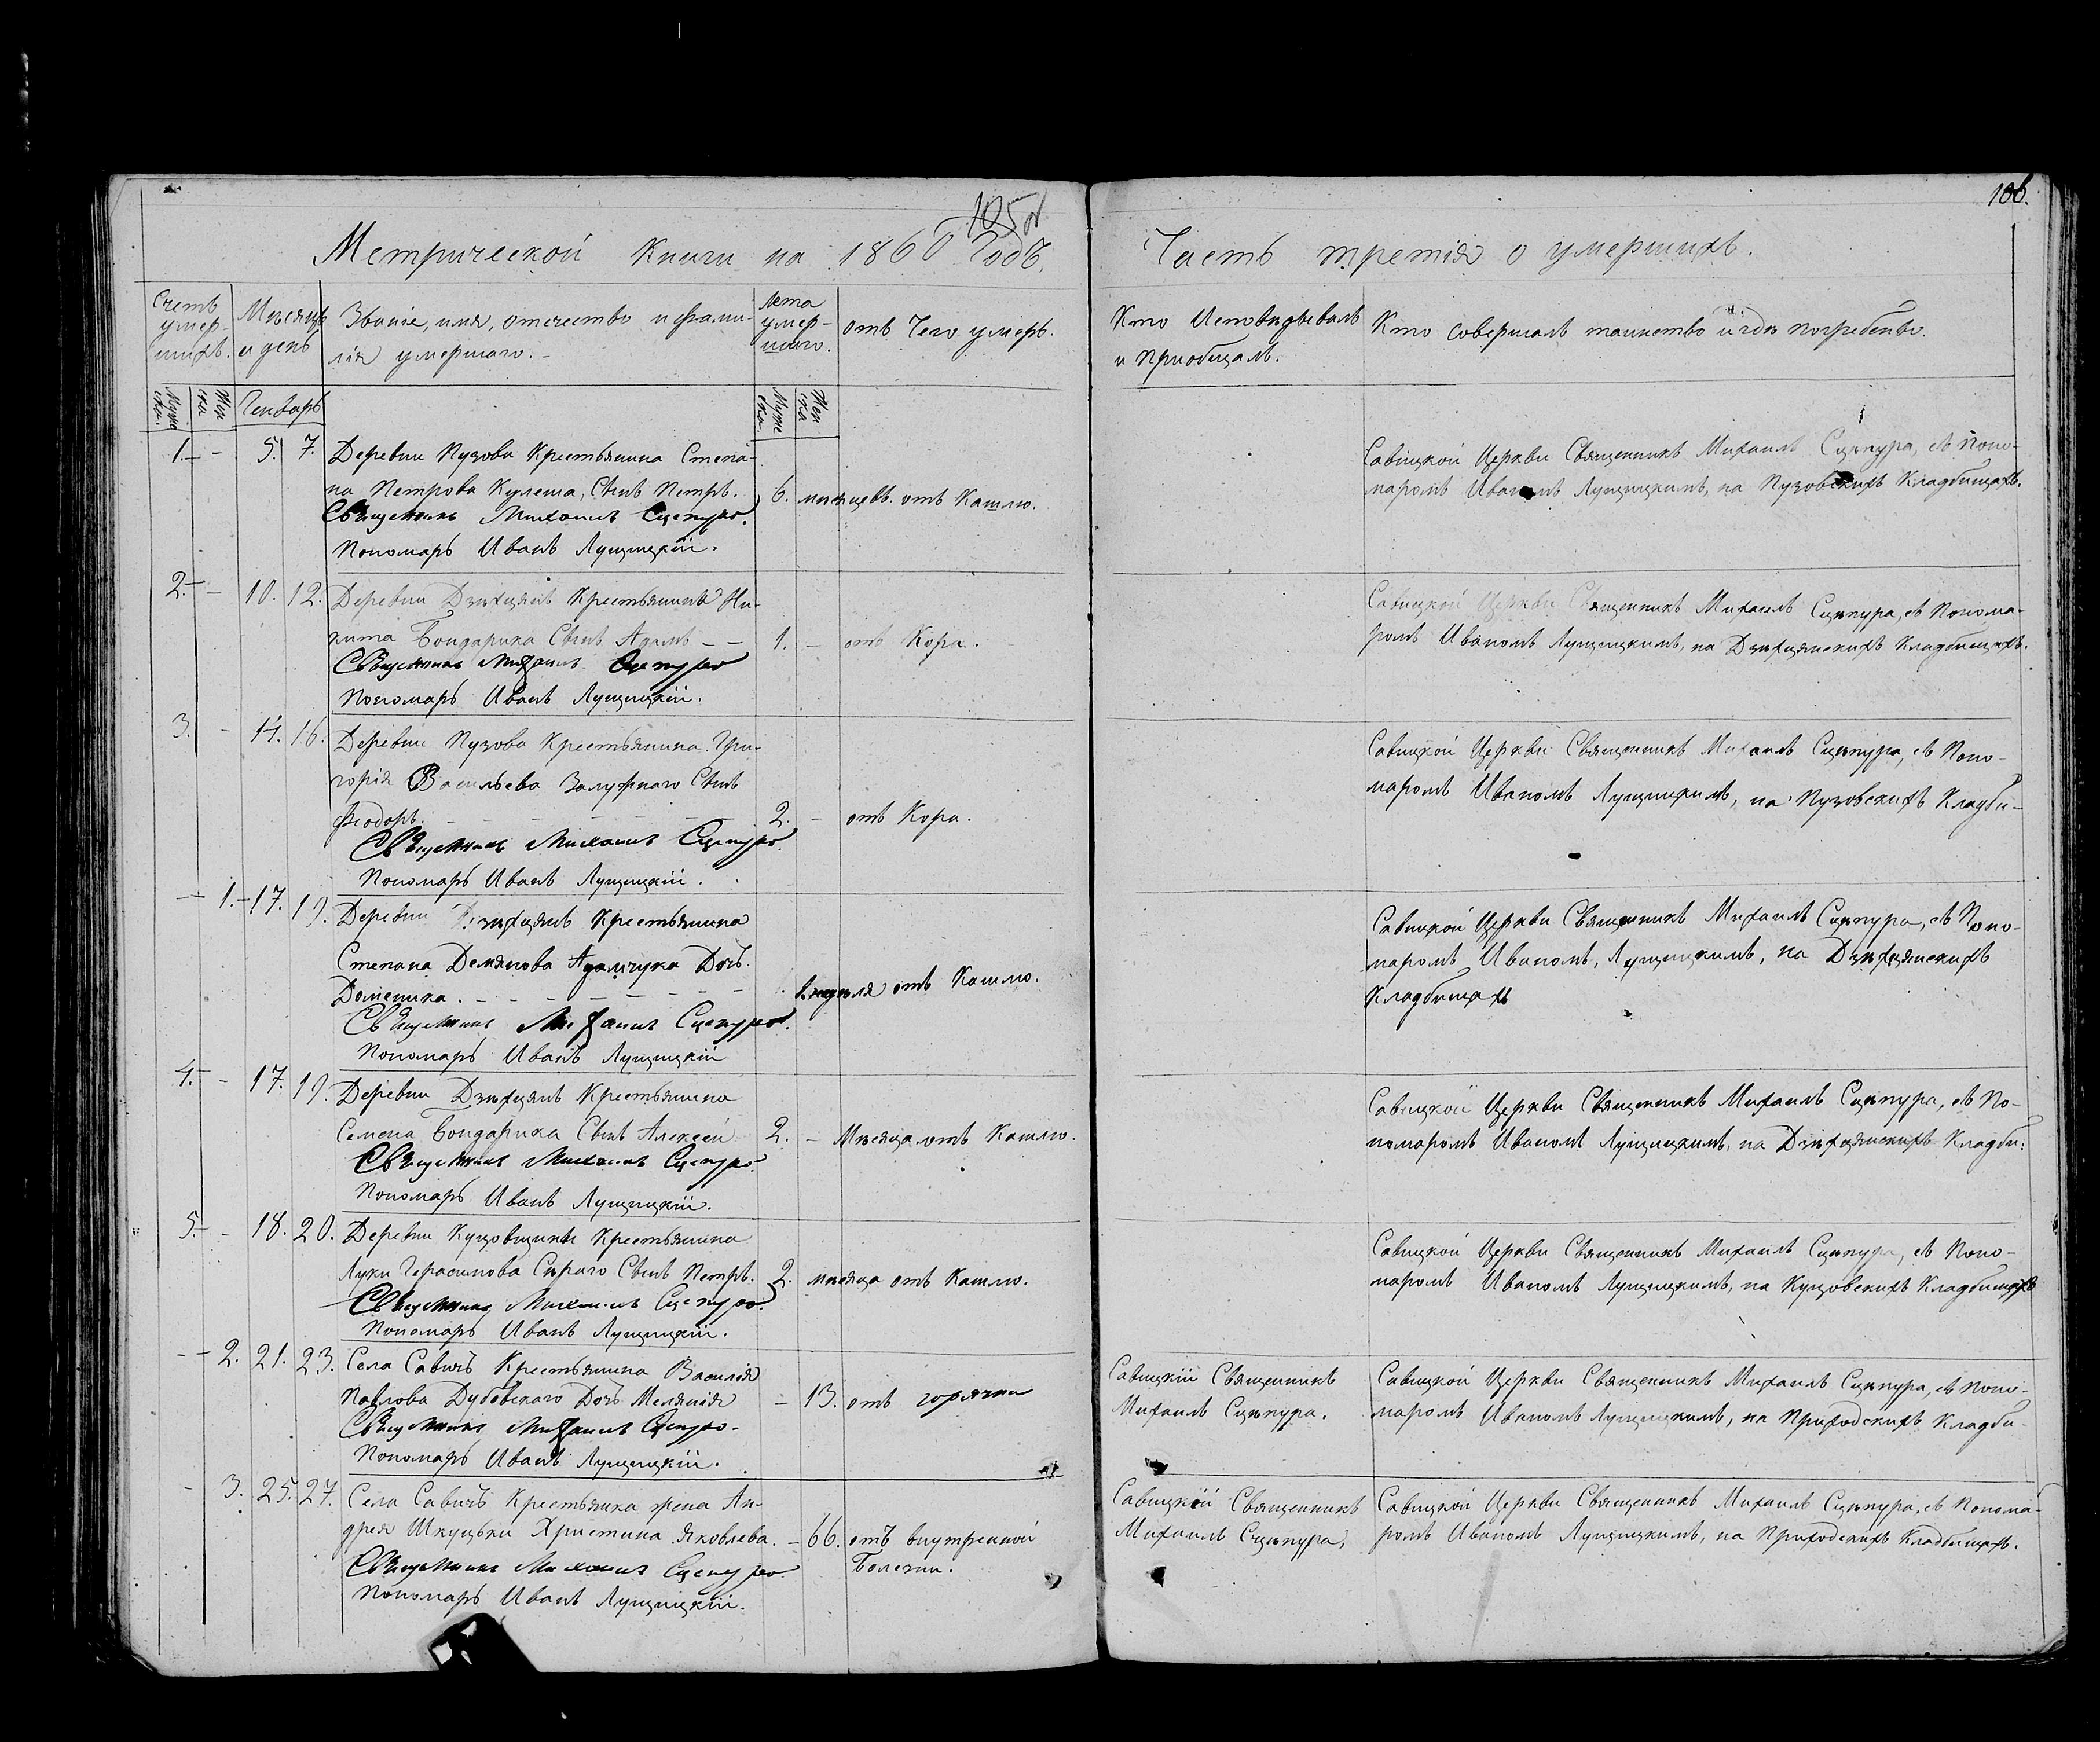 105об
106.
Метрической Книги на 1860 Годъ.
Часть третія о умершихъ.
Счетъ умер-шихъ.
Мѣсяцъ и день
Званіе, имя, отчество и фами-
лія умершаго. -
Лета умер-шаго.
отъ Чего умеръ.
Кто Исповѣдывалъ
и Приобщалъ.
Кто совершалъ таинство и гдѣ погребены.
Муже ска.
Жен ска
Генварь
Муже ска.
Жен ска
1. - - 5. 7. Деревни Пузова Крестьянина Степа-
на Петрова Кулеша, Сынъ Петръ. 6. мѣсяцевъ. отъ Кашлю.
Священникъ Михаилъ Сцепуро.
Пономарь Иванъ Лущицкій.
Савицкой Церкви Священникъ Михаилъ Сцѣпура, съ Поно-
маромъ Иваномъ Лущицкимъ, на Пузовскихъ Кладбищахъ.
2. - - 10. 12. Деревни Дзѣхцянъ Крестьянина Ни-
кита Бондарика Сынъ Адамъ - - 1. - отъ Кора.
Священникъ Михаилъ Сцепуро
Пономарь Иванъ Лущицкій.
Савицкой Церкви Священникъ Михаилъ Сцѣпура, съ Понома-
ромъ Иваномъ Лущицкимъ, на Дзѣхцянскихъ Кладбищахъ.
3. - 14. 16. Деревни Пузова Крестьянина Гри-
горія Васильева Залужнаго Сынъ
Феодоръ. - - - - - - - 2. - отъ Кора.
Священникъ Михаилъ Сцепуро.
Пономарь Иванъ Лущицкій.
Савицкой Церкви Священникъ Михаилъ Сцѣпура, съ Поно-
маромъ Иваномъ Лущицкимъ, на Пузовскихъ Кладби-
- 1. - 17. 19. Деревни Дзѣхцянъ Крестьянина
Степана Демянова Адамчука Дочь
Доменика. - - - - - - - недѣля отъ Кашлю.
Священникъ Михаилъ Сцепуро.
Пономарь Иванъ Лущицкій
Савицкой Церкви Священникъ Михаилъ Сцѣпура, съ Поно-
маромъ Иваномъ, Лущицкимъ, на Дзѣхцянскихъ
Кладбищахъ
4. - - 17. 19. Деревни Дзѣхцянъ Крестьянина
Семена Бондарика Сынъ Алексѣй 2. - Мѣсяца отъ Кашлю.
Священникъ Михаилъ Сцепуро.
Пономарь Иванъ Лущицкій.
Савицкой Церкви Священникъ Михаилъ Сцѣпура, съ По-
номаромъ Иваномъ Лущицкимъ, на Дзѣхцянскихъ Кладби:
5. - - 18. 20. Деревни Куцовщины Крестьянина
Луки Герасимова Сѣраго Сынъ Петръ. 2. мѣсяца отъ Кашлю.
Священникъ Михаилъ Сцепуро.
Пономарь Иванъ Лущицкій.
Савицкой Церкви Священникъ Михаилъ Сцѣпура, съ Поно-
маромъ Иваномъ Лущицкимъ, на Куцовскихъ Кладбищахъ
- - 2. 21. 23. Села Савичъ Крестьянина Василія
Павлова Дубовскаго Дочь Меланія - 13. отъ горячки
Священникъ Михаилъ Сцепуро.
Пономарь Иванъ Лущицкій.
Савицкій Священникъ
Михаилъ Сцѣпура.
Савицкой Церкви Священникъ Михаилъ Сцѣпура, съ Поно-
маромъ Иваномъ Лущицкимъ, на Приходскихъ Кладби-
- 3. 25. 27. Села Савичъ Крестьянка жена Ан-
дрея Шкуцьки Христина Яковлева. - 66. отъ внутренной
Болезни.
Священникъ Михаилъ Сцепуро
Пономарь Иванъ Лущицкій.
Савицкій Священникъ
Михаилъ Сцѣпура,
Савицкой Церкви Священникъ Михаилъ Сцѣпура, съ Понома-
ромъ Иваномъ Лущицкимъ, на Приходскихъ Кладбищахъ.